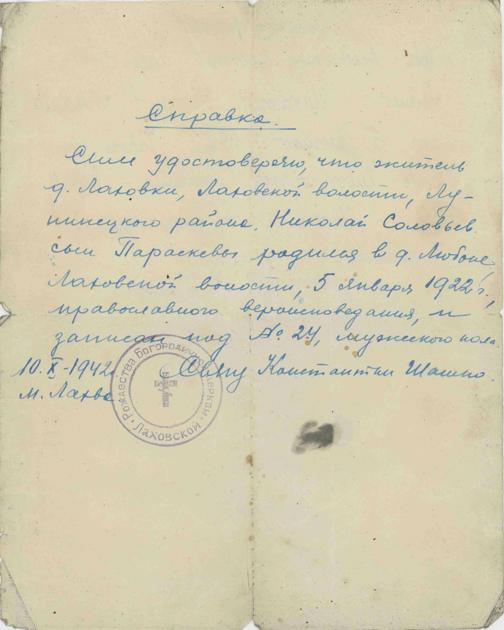 Справка.
Сим удостоверяю, что житель
д. Лаховки, Лаховской волости, Лу-
нинецкого района, Николай Соловьев
сын Параскевы родился в д. Любане,
Лаховской волости, 5 января 1922 г.,
православного вероисповедания, и
записан под № 24, мужеского пола
10.X-1942 Свящ Константин Шашко
м. Лахва
Рождества Богородичной церкви
Лаховской